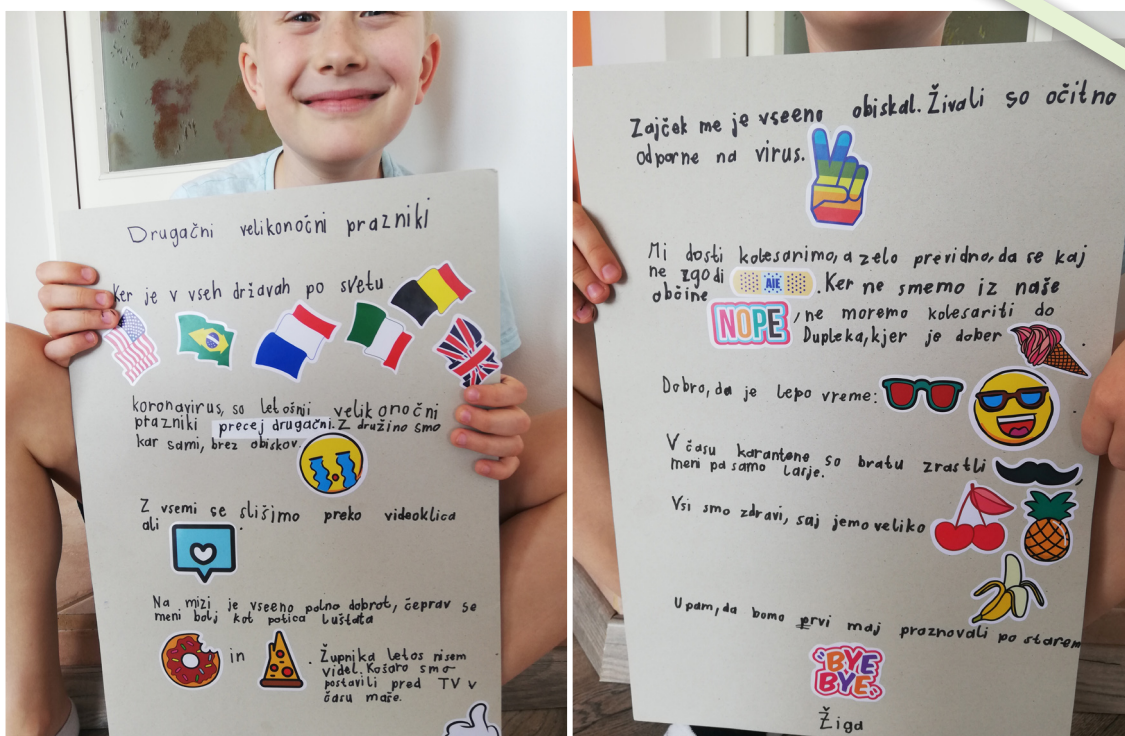 Drugačni velikonočni prazniki
Ker je v vseh državah po svetu
koronavirus, so letošnji velikonočni
prazniki precej drugačni. Z družino smo
kar sami, brez obiskov.
Z vsemi se slišimo preko videoklica
ali .
Na mizi je vseeno polno dobrot, čeprav se
meni bolj kot potica luštata
in . Župnika letos nisem
videl. Košaro smo
postavili pred TV v
času maše.
Zajček me je vseeno obiskal. Živali so očitno
odporne na virus.
Mi dosti kolesarimo, a zelo previdno, da se kaj
ne zgodi AIE . Ker ne smemo iz naše
občine NOPE , ne moremo kolesariti do
Dupleka, kjer je dober .
Dobro, da je lepo vreme: .
V času karantene so bratu zrastli ,
meni pa samo lasje.
Vsi smo zdravi, saj jemo veliko
Upam, da bomo prvi maj praznovali po starem
BYE
BYE
Žiga